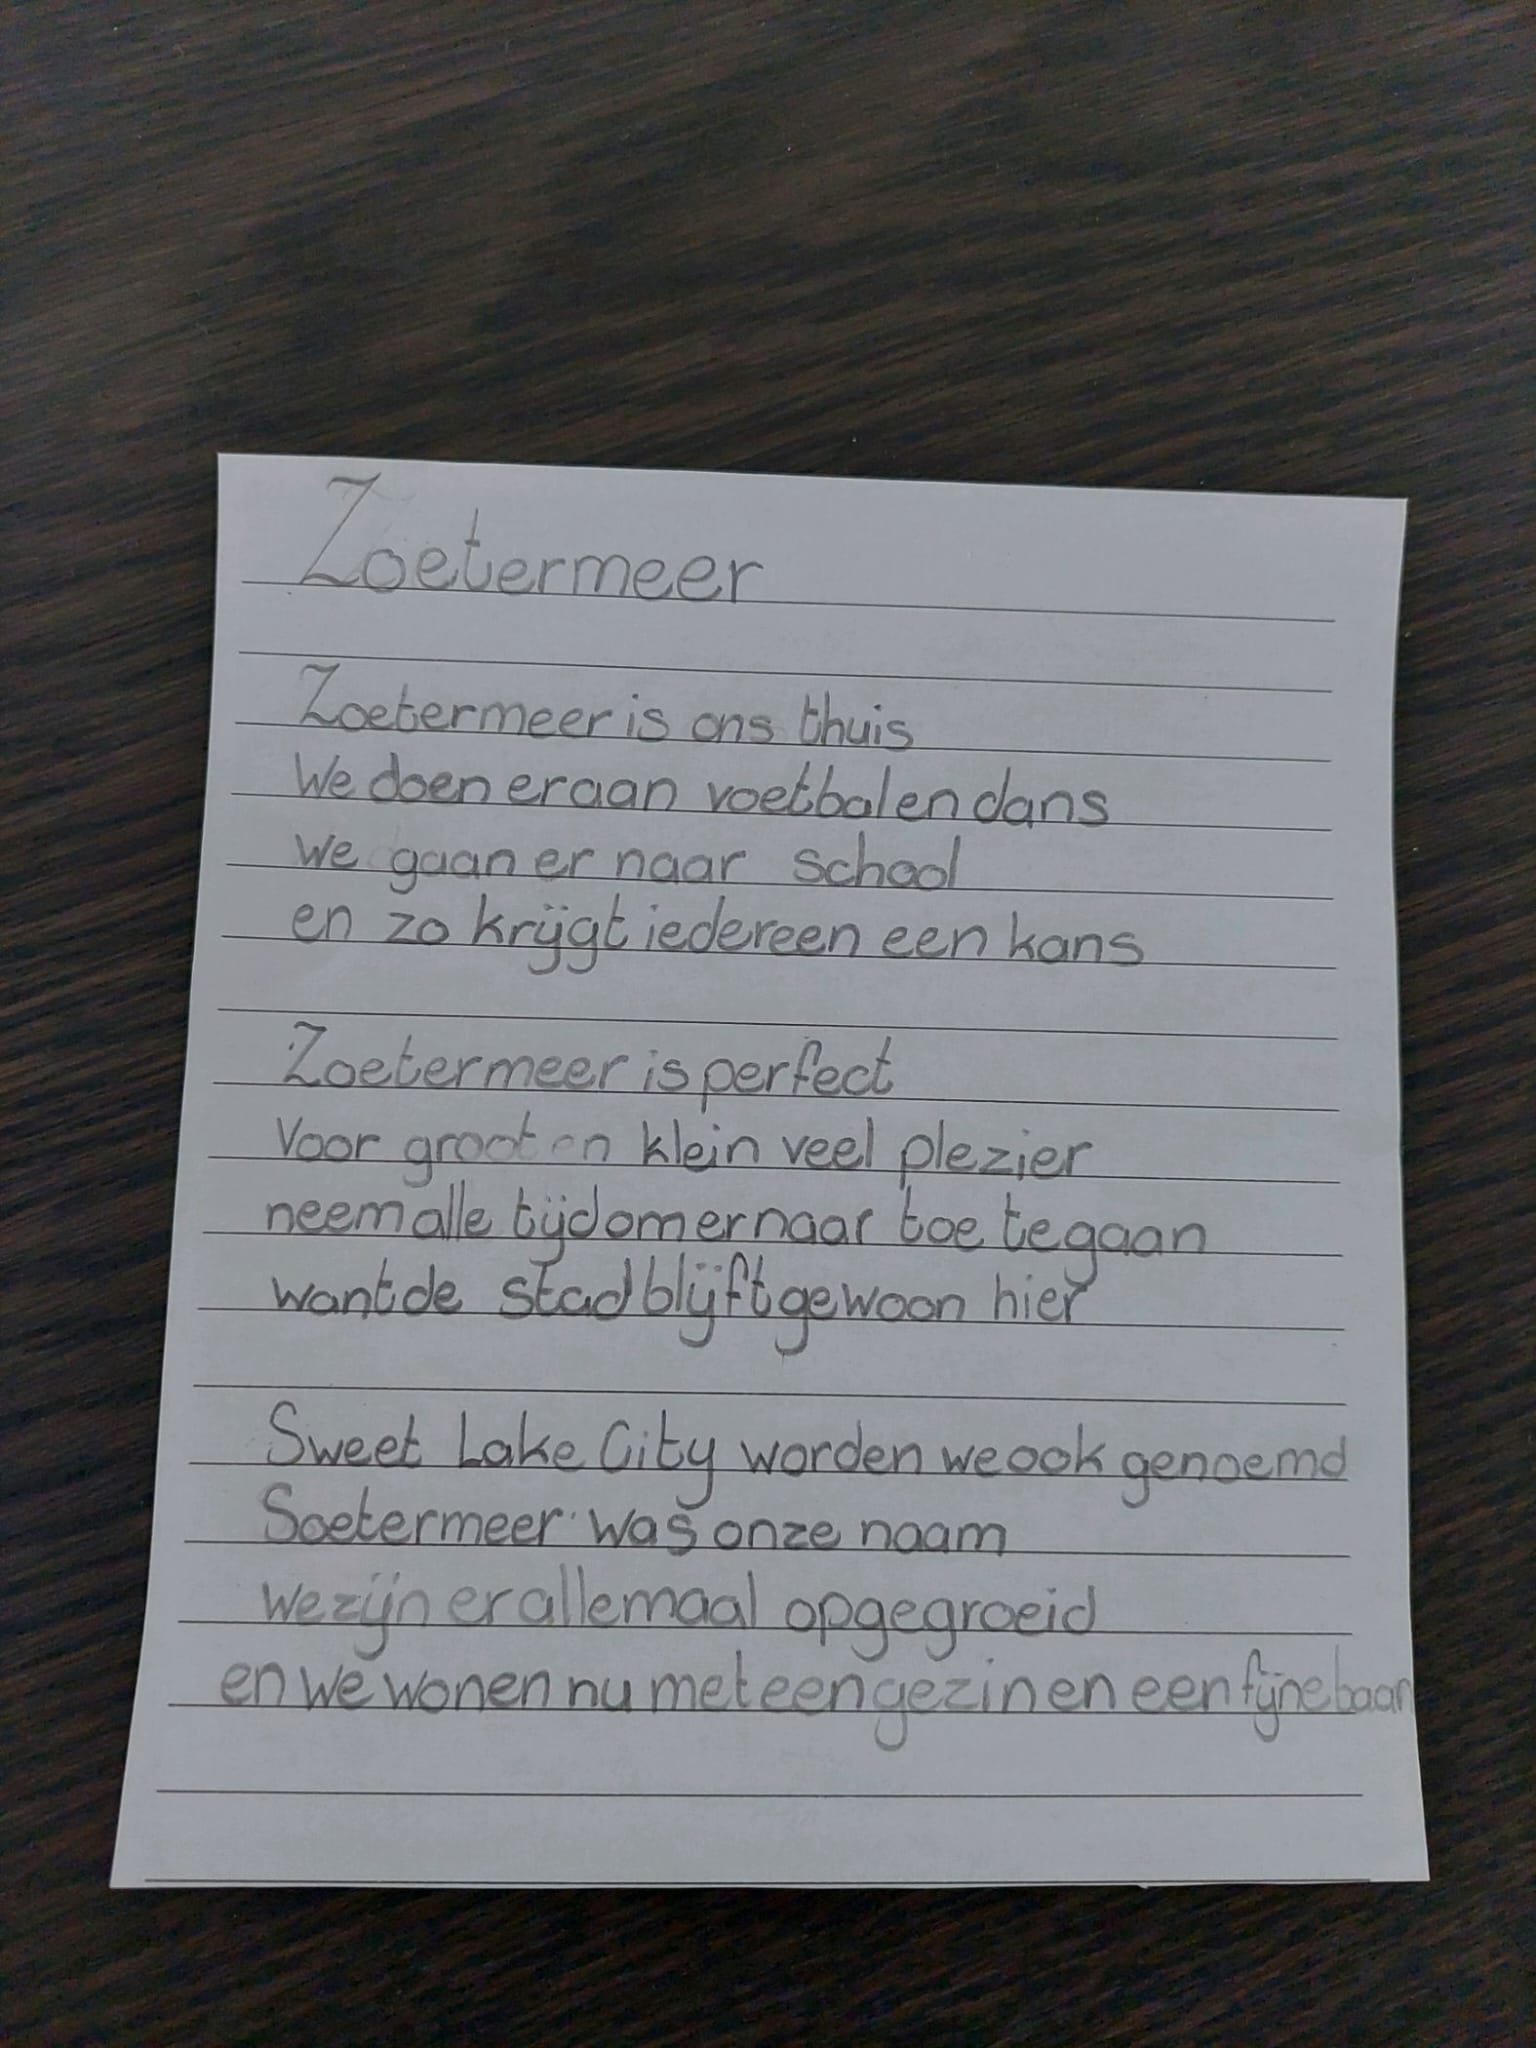 Zoetermeer
Zoetermeer is ons thuis
We doen er aan voetbal en dans
we gaan er naar school
en zo krijgt iedereen een kans
Zoetermeer is perfect
Voor groot en klein veel plezier
neem alle tijd om er naar toe te gaan
want de stad blijft gewoon hier
Sweet Lake City worden we ook genoemd
Soetermeer was onze naam
we zijn er allemaal opgegroeid
en we wonen nu met een gezin en een fijne baan